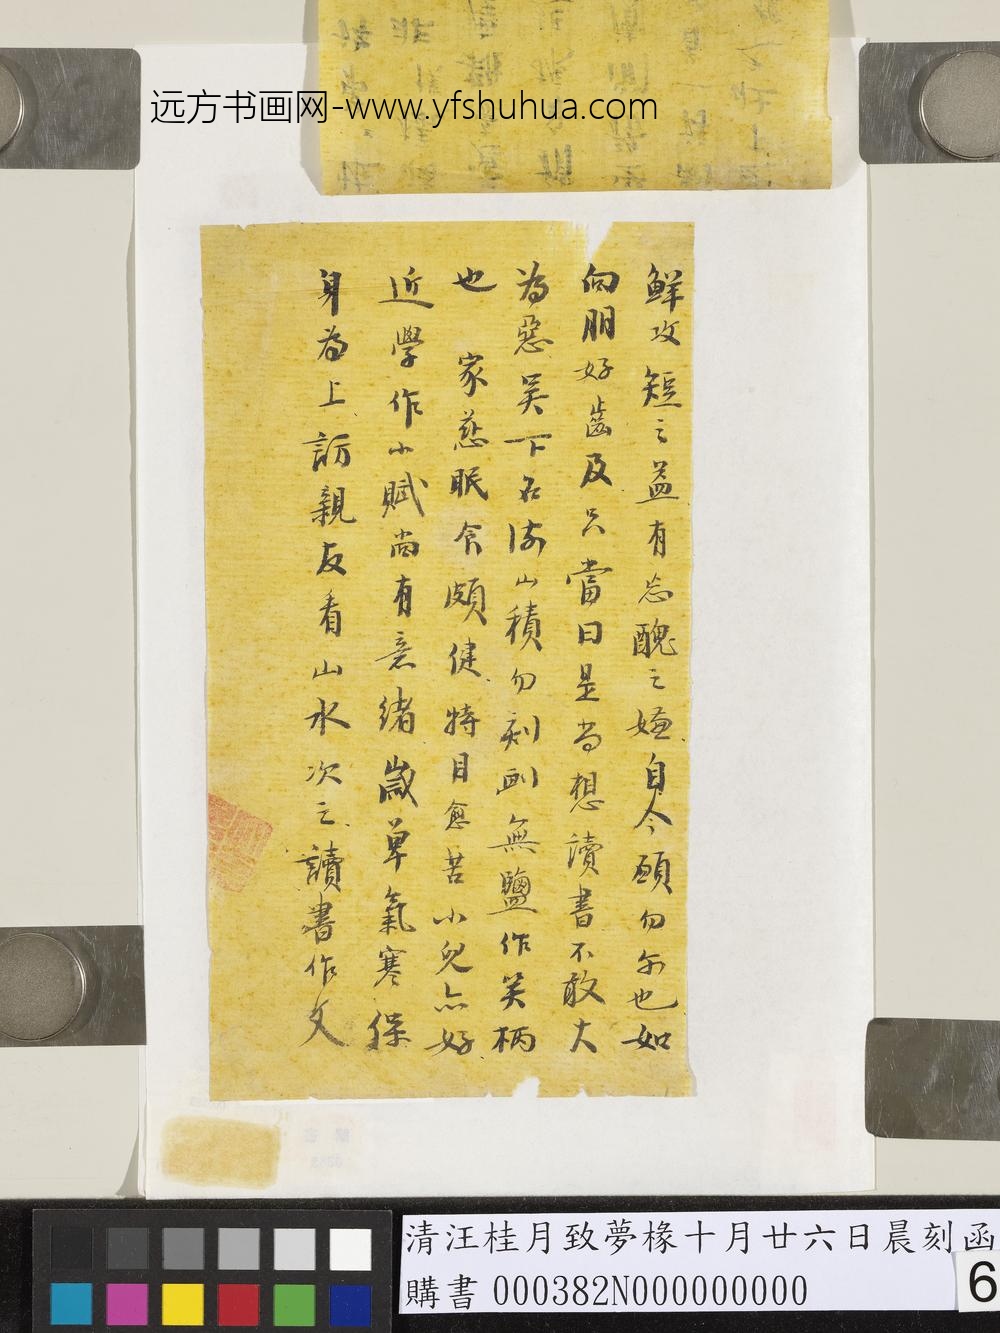 远方书画网-www.yfshuhua.com
鮮攻短之益有忘醜之嫌自今願勿尔也如
向朋好齒及只當日是尚想讀書不敢大
為惡吴下名流山積勿刻畫無鹽作笑柄
也 家慈眠食頗健特目愈苦小兒亦好
近學作小賦尚有意緒歲單氣寒保
身為上訪親友看山水次之讀書作文
清汪桂月致夢椽十月廿六日晨刻函
購書 000382N000000000
6